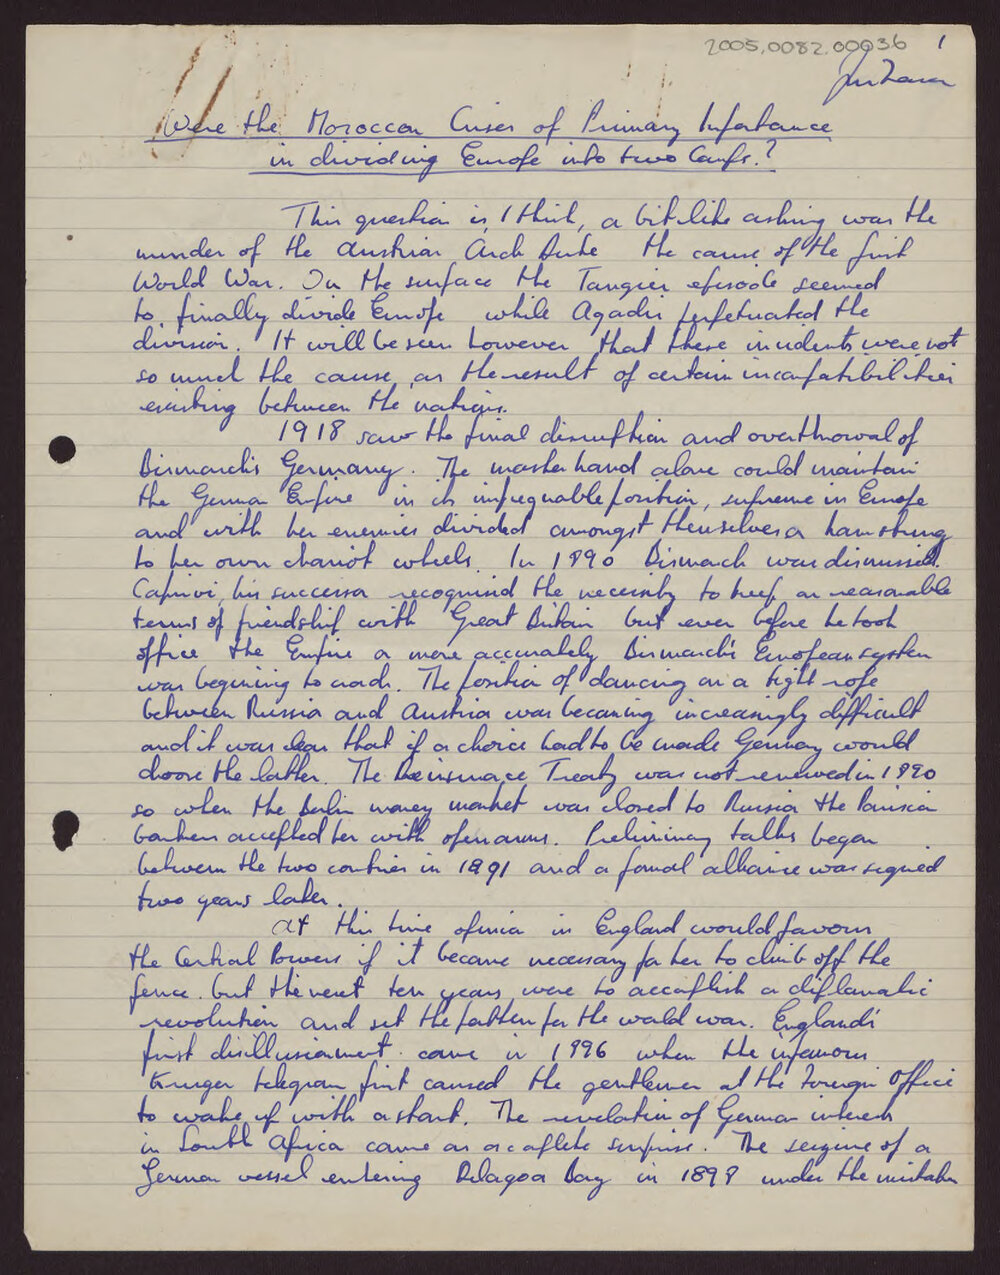 2005.0082.00036 1
Were the Moroccan Crises of Primary Importance
in dividing Europe into two Camps.?
This question is, I think, a bit like asking was the
murder of the Austrian Arch Duke the cause of the first
World War. On the surface the Tangier episode seemed
to finally divide Europe while Agadir perpetuated the
division. It will be seen however that these incidents were not
so much the cause as the result of certain incompatibilities
existing between the nations.
1918 saw the final disruption and overthrowal of
Bismarck's Germany. The master hand alone could maintain
the German Empire in its impregnable position, supreme in Europe
and with her enemies divided amongst themselves or hamstrung
to her own chariot wheels. In 1890 Bismarck was dismissed.
Caprivi, his successor recognised the necessity to keep on reasonable
terms of friendship with Great Britain but even before he took
office the Empire or more accurately Bismarck's European system
was begining to crack. The position of dancing on a tight rope
between Russia and Austria was becoming increasingly difficult
and it was clear that if a choice had to be made Germany would
choose the latter. The Reinsurance Treaty was not renewed in 1890
so when the Berlin money market was closed to Russia the Parisian
bankers accepted her with open arms. Preliminary talks began
between the two contries in 1891 and a formal alliance was signed
two years later.
At this time opinion in England would favour
the Central Powers if it became necessary for her to climb off the
fence. but the next ten years were to accomplish a diplomatic
revolution and set the pattern for the world war. England's
first disillusionment came in 1896 when the infamous
Kruger telegram first caused the gentlemen at the Foreign Office
to wake up with a start. The revelation of German interest
in South Africa came as a complete surprise. The seizure of a
German vessel entering Delagoa Bay in 1898 under the mistaken